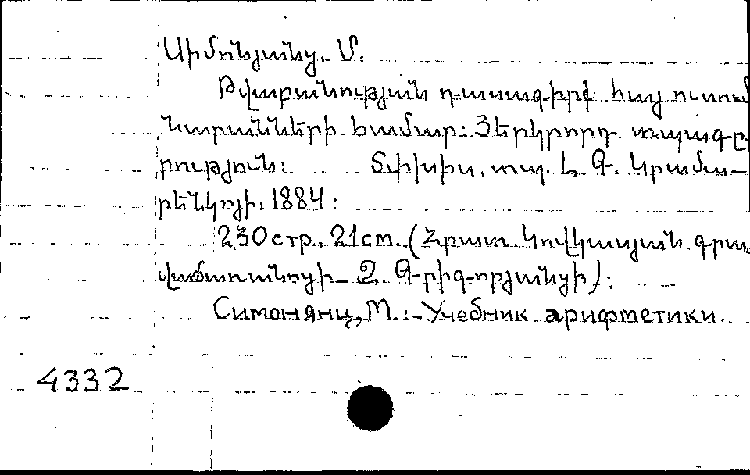 Սիմոնյանց. Մ.
Թվաբանության դասագիրք հայ ուսում
նարանների համար: Յերկրորդ տպագը
րություն: Տփխիս, տպ. և Գ. Կրամա-
րենկոյի. 1884:
230 стр. 21 cm. (Հրատ. Կովկասյան գրա
վաճառանոցի Զ. Գրիգորյանցի):
Симонянц, М.:-Учебник арифметики.
4332